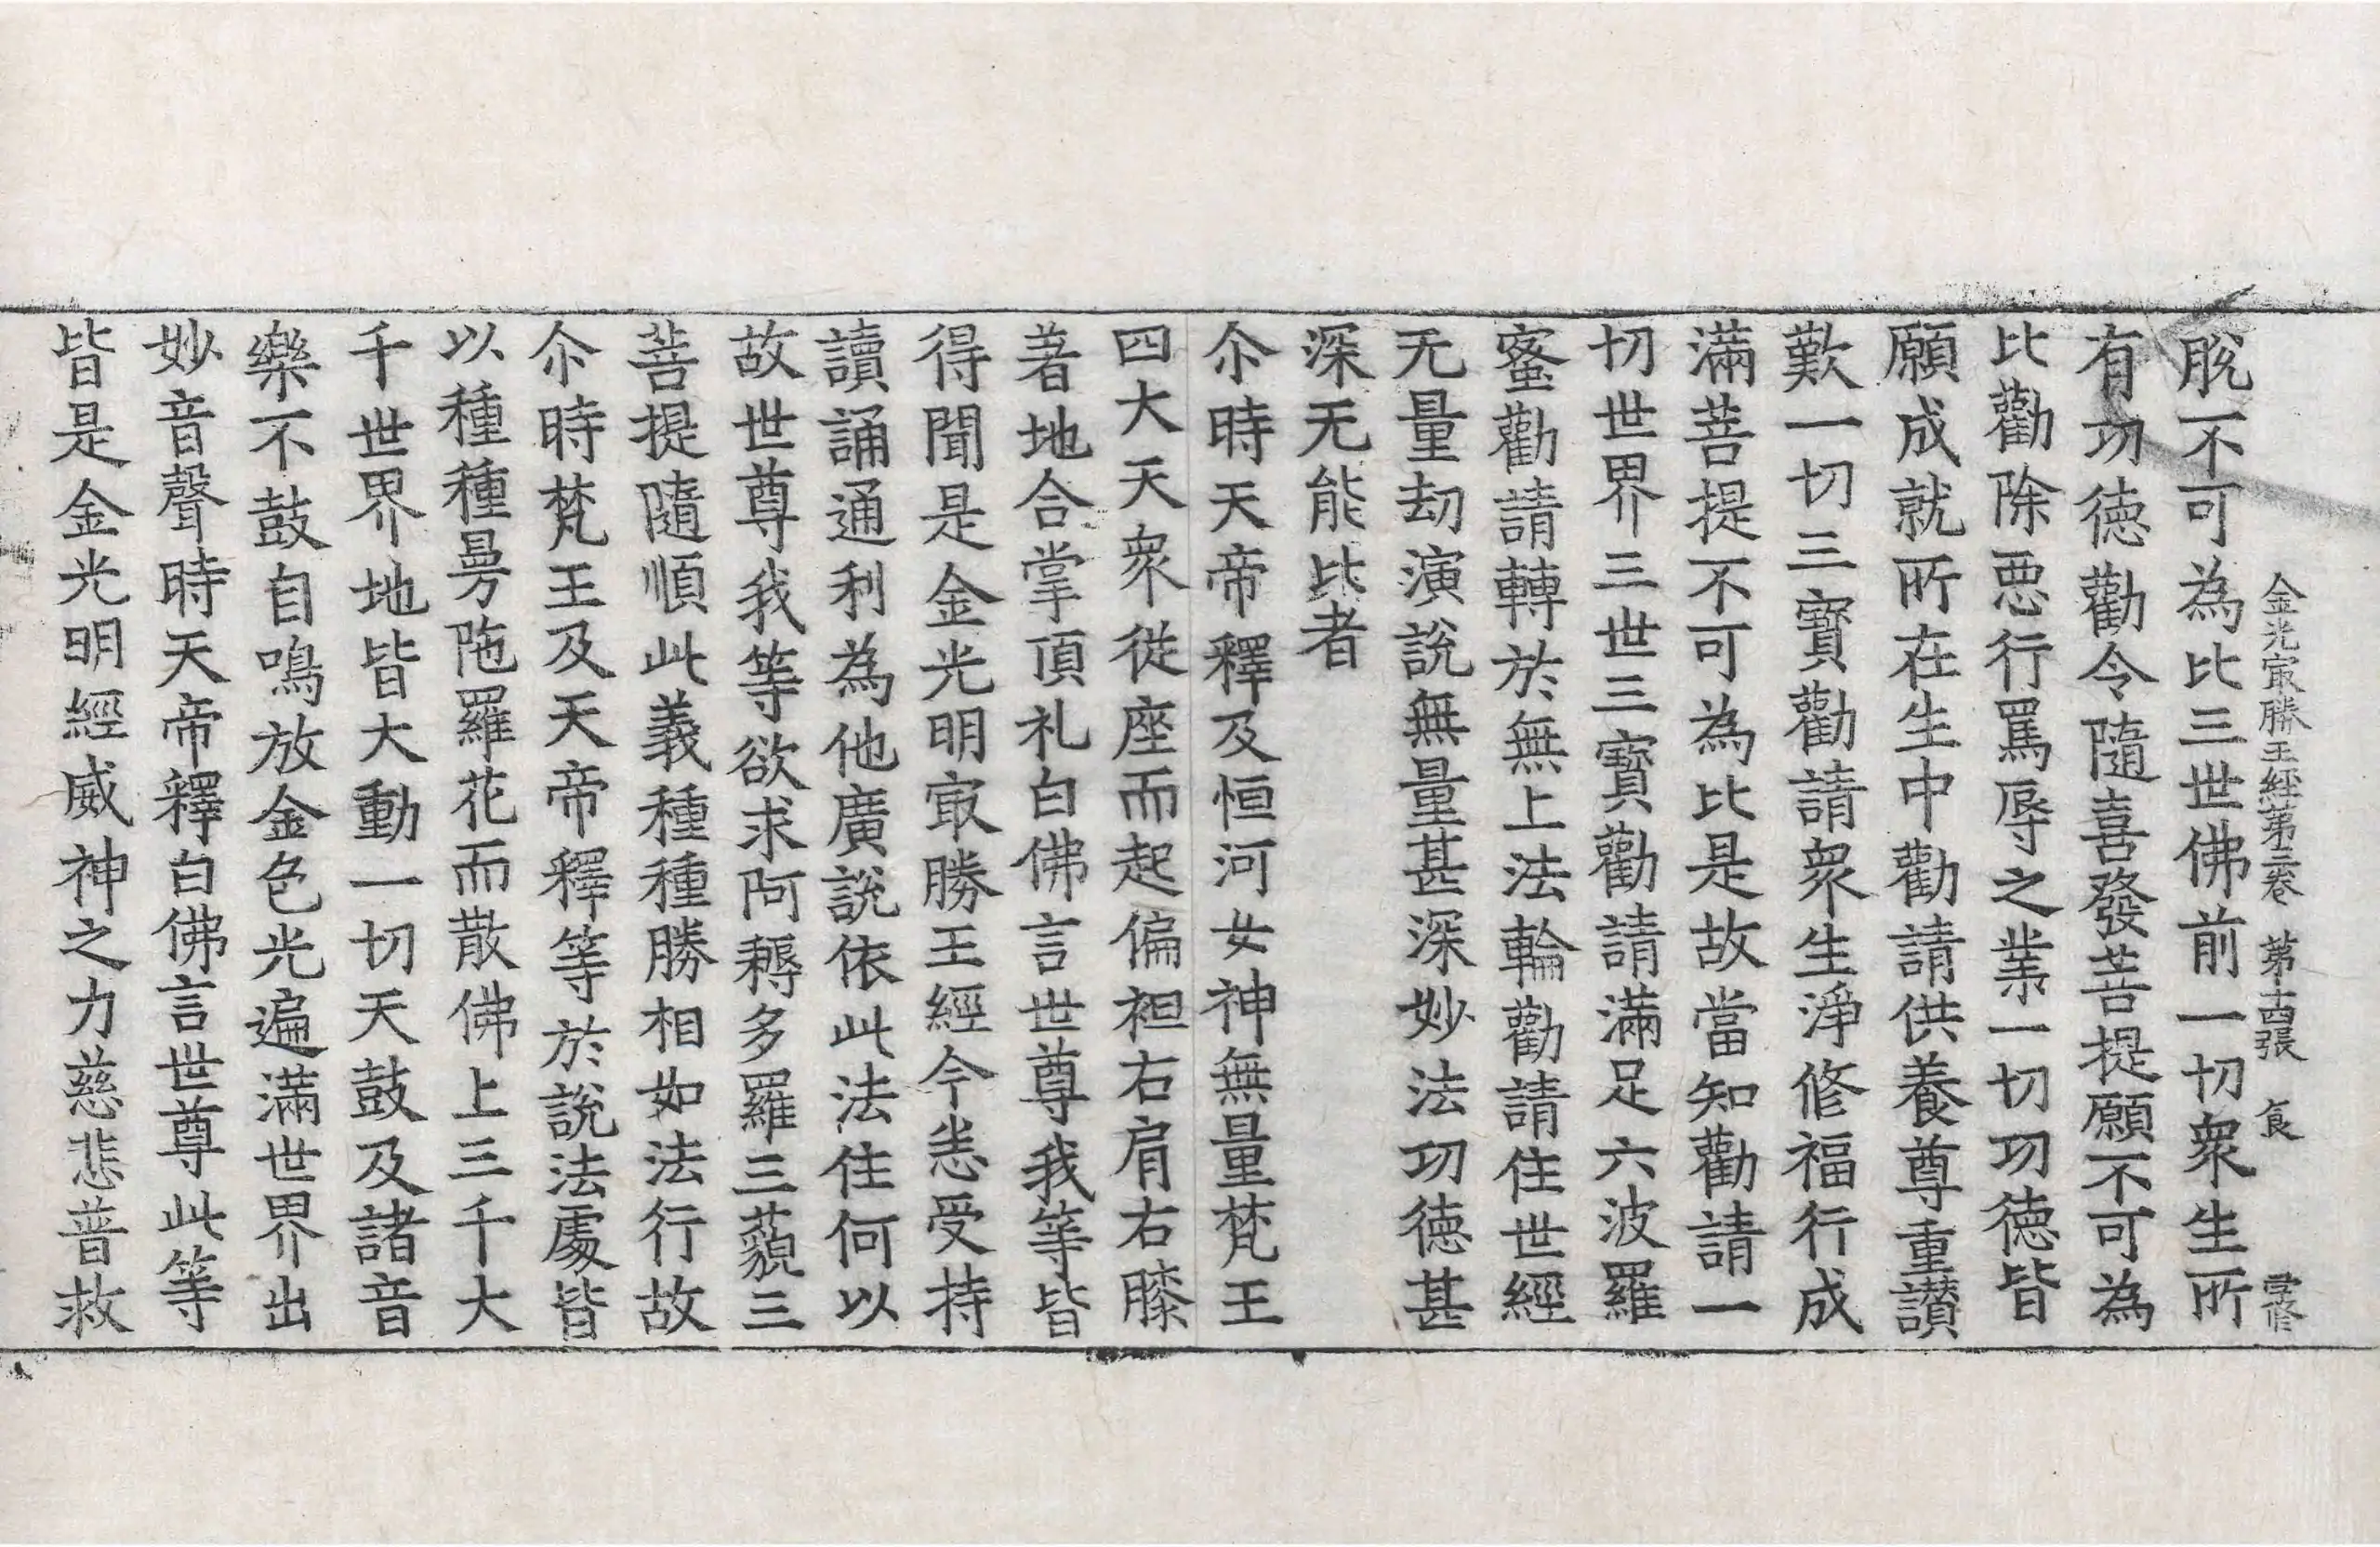 金光㝡勝王經苐三卷 苐十四張 食
脫不可為比三世佛前一切衆生所
有功徳勸令隨喜發菩提願不可為
比勸除惡行罵辱之業一切功徳皆
願成就所在生中勸請供養尊重讃
歎一切三寳勸請衆生淨修福行成
滿菩提不可為比是故當知勸請一
切世界三世三寳勸請滿足六波羅
蜜勸請轉於無上法輪勸請住世經
无量劫演說無量甚深妙法功徳甚
深无能比者
尒時天帝釋及恒河女神無量梵王
四大天衆從座而起偏袒右肩右膝
著地合掌頂礼白佛言世尊我等皆
得聞是金光明㝡勝王經今悉受持
讀誦通利為他廣說依此法住何以
故世尊我等欲求阿耨多羅三藐三
菩提隨順此義種種勝相如法行故
尒時梵王及天帝釋等於說法處皆
以種種曼陁羅花而散佛上三千大
千世界地皆大動一切天鼓及諸音
樂不鼓自鳴放金色光遍滿世界出
妙音聲時天帝釋白佛言世尊此等
皆是金光明經威神之力慈悲普救